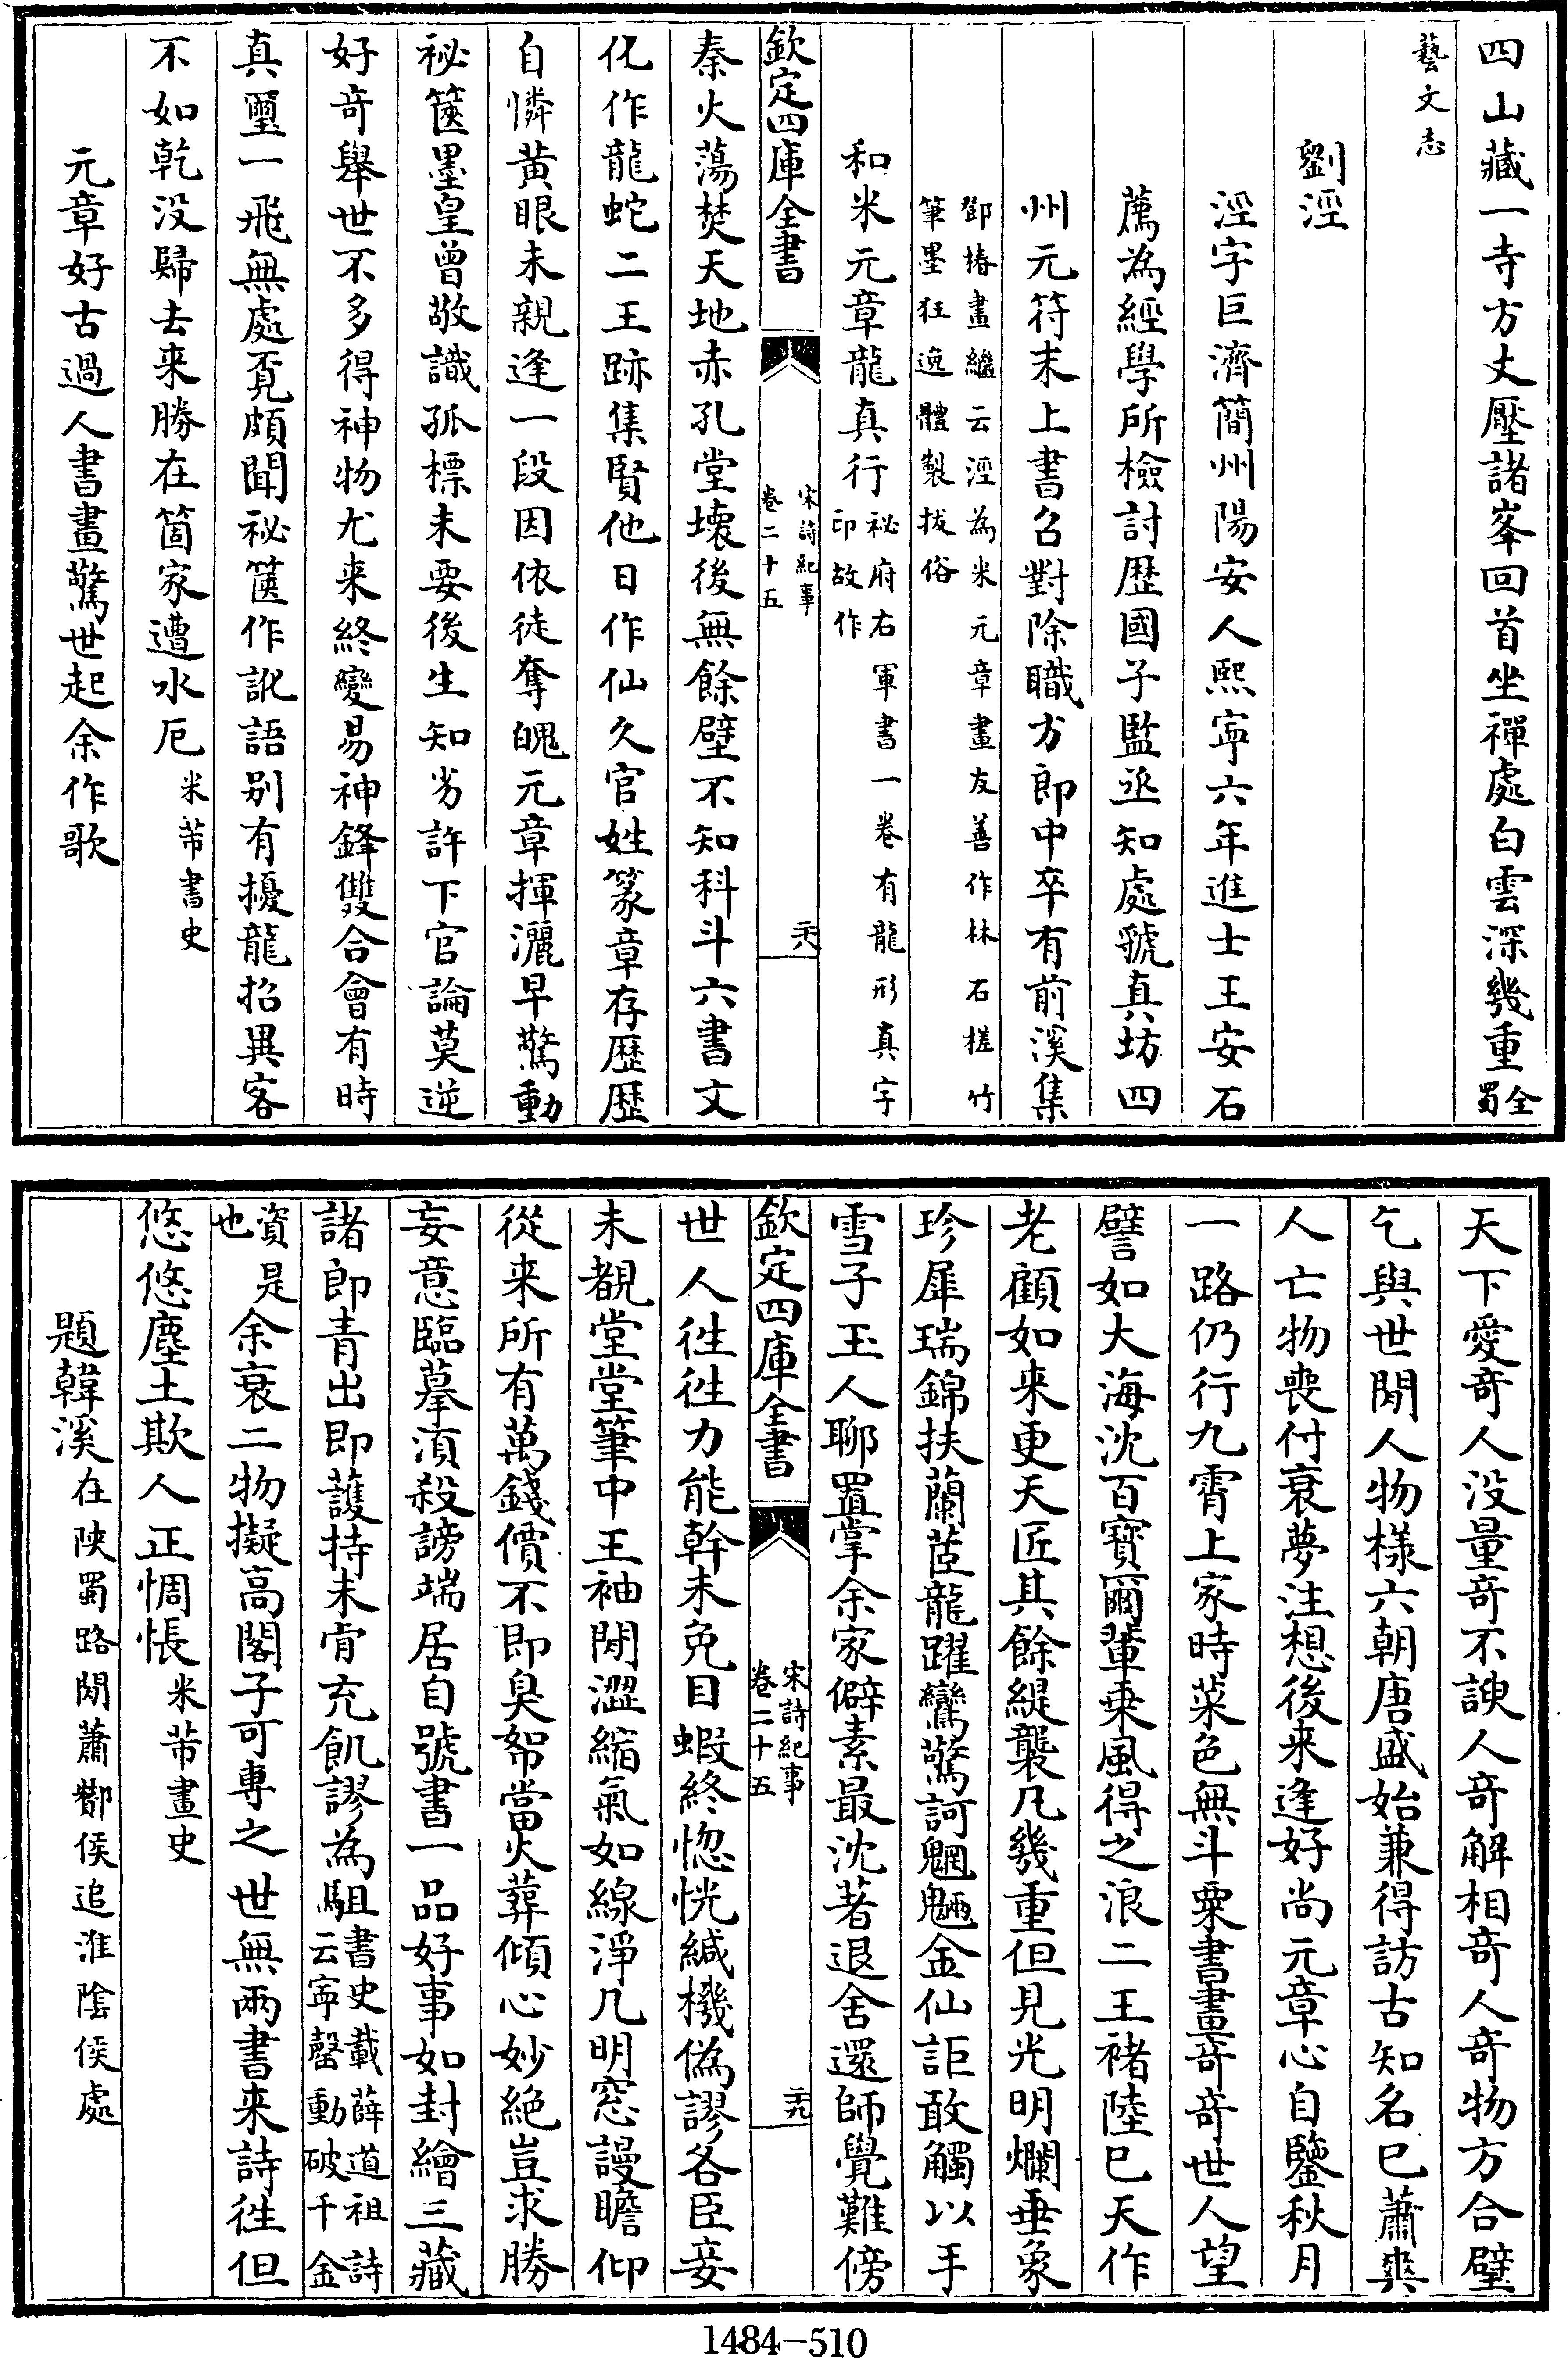 四山藏一寺方丈壓諸峯回首坐禪處白雲深幾重全蜀
藝文志
劉涇
涇字巨濟簡州陽安人熙寧六年進士王安石
薦為經學所檢討歴國子監丞知處虢真坊四
州元符末上書召對除職方郎中卒有前溪集
鄧椿畫繼云涇為米元章畫友善作林石槎竹
筆墨狂逸體製拔俗
和米元章龍真行祕府右軍書一卷有龍形真字
印故作
欽定四庫全書
宋詩紀事
卷二十五
二十八
秦火蕩焚天地赤孔堂壞後無餘壁不知科斗六書文
化作龍蛇二王跡集賢他日作仙久官姓篆章存歴歴
自憐黄眼未親逢一段因依徒奪魄元章揮灑早驚動
祕篋墨皇曾敬識孤標未要後生知劣許下官論莫逆
好竒舉世不多得神物尤来終變易神鋒雙合會有時
真璽一飛無處覔頗聞祕篋作訛語别有擾龍招異客
不如乾没歸去来勝在箇家遭水厄米芾書史
元章好古過人書畫驚世起余作歌
天下愛竒人没量竒不諛人竒解相竒人竒物方合璧
乞與世間人物樣六朝唐盛始兼得訪古知名已蕭爽
人亡物喪付衰夢注想後来逢好尚元章心自鑒秋月
一路仍行九霄上家時菜色無斗粟書畫竒竒世人望
譬如大海沈百寶爾輩乗風得之浪二王褚陸已天作
老顧如来更天匠其餘緹襲凡幾重但見光明爛垂象
珍犀瑞錦扶蘭茝龍躍鸞驚訶魍魎金仙詎敢觸以手
雪子玉人聊置掌余家僻素最沈著退舍還師覺難傍
欽定四庫全書
宋詩紀事
卷二十五
二十九
世人徃徃力能幹未免目蝦終惚恍緘機偽謬各臣妾
未覩堂堂筆中王袖間澀縮氣如線淨几明窓謾瞻仰
從来所有萬錢價不即臭帤當火葬傾心妙絶豈求勝
妄意臨摹湏殺謗端居自號書一品好事如封繪三藏
諸郎青出即䕶持未肯充飢謬為駔書史載薛道祖詩
云寜罄動破千金
資是余衰二物擬高閣子可專之世無兩書来詩徃但
也
悠悠塵土欺人正惆悵米芾畫史
題韓溪在陜蜀路間蕭酇侯追淮隂侯處
1484-510